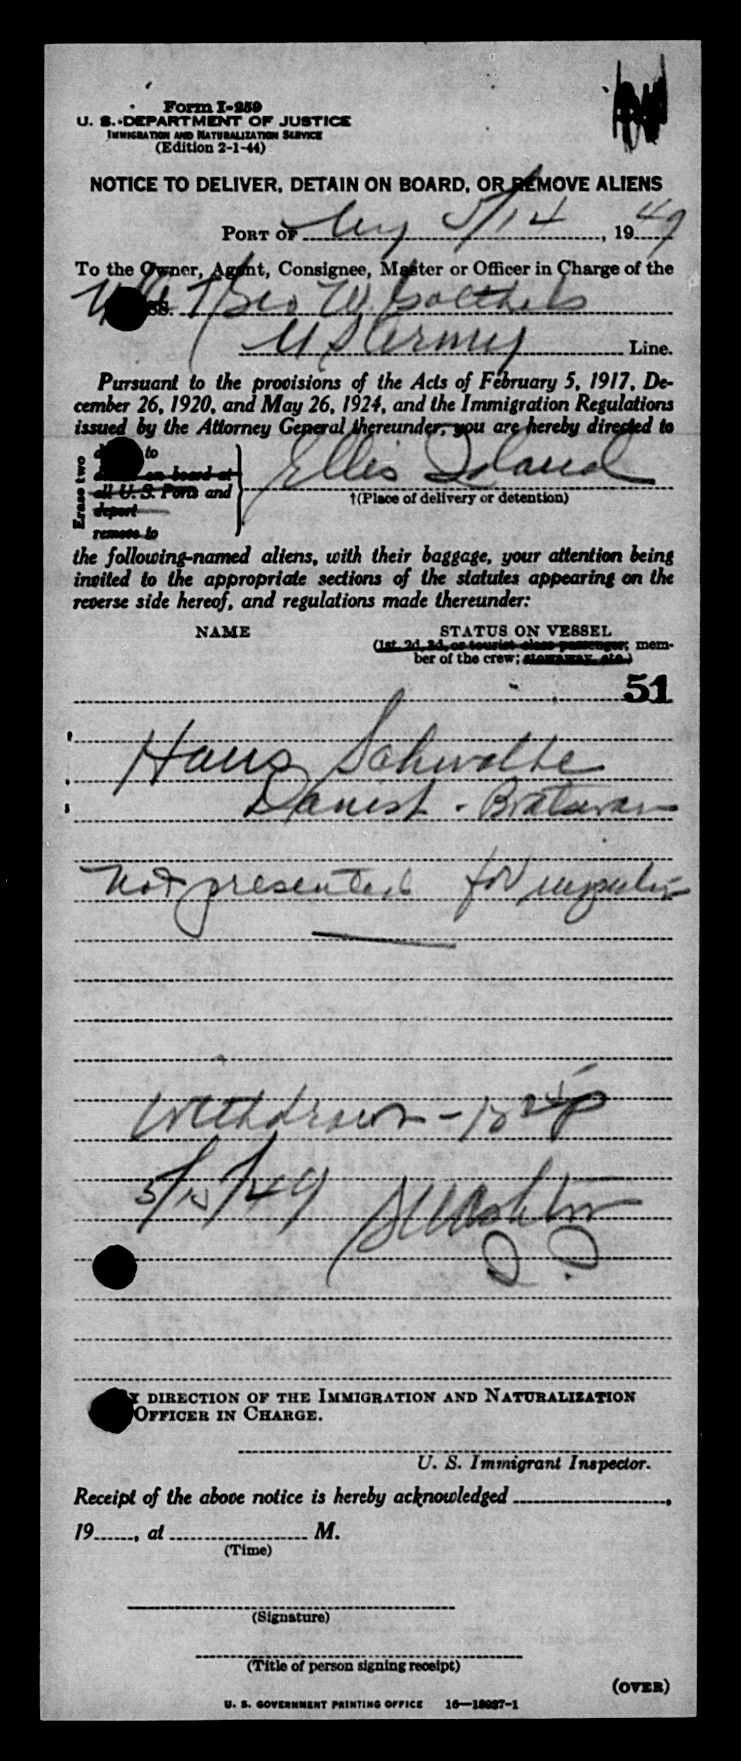 Form I-259
U. S. DEPARTMENT OF JUSTICE
IMMIGRATION AND NATURALIZATION SERVICE
(Edition 2-1-44)
NOTICE TO DELIVER, DETAIN ON BOARD, OR REMOVE ALIENS
PORT OF NY 5/14, 1949
To the Owner, Agent, Consignee, Master or Officer in Charge of the
SS. Geo W Goethals
US Army Line.
Pursuant to the provisions of the Acts of February 5, 1917, De-
cember 26, 1920, and May 26, 1924, and the Immigration Regulations
issued by the Attorney General thereunder, you are hereby directed to
to
on board at
all U. S. Ports and
deport
remove to
Erase two
Ellis Island
†(Place of delivery or detention)
the following-named aliens, with their baggage, your attention being
invited to the appropriate sections of the statutes appearing on the
reverse side hereof, and regulations made thereunder:
NAME STATUS ON VESSEL
(1st, 2d, 3d, or tourist class passenger; mem-
ber of the crew; stowaway, etc.)
51
Hans
Danish -
Not presented for
Withdrawn -
5/15/49
BY DIRECTION OF THE IMMIGRATION AND NATURALIZATION
OFFICER IN CHARGE.
U. S. Immigrant Inspector.
Receipt of the above notice is hereby acknowledged ,
19 , at M.
(Time)
(Signature)
(Title of person signing receipt)
(OVER)
U. S. GOVERNMENT PRINTING OFFICE 16—18937-1